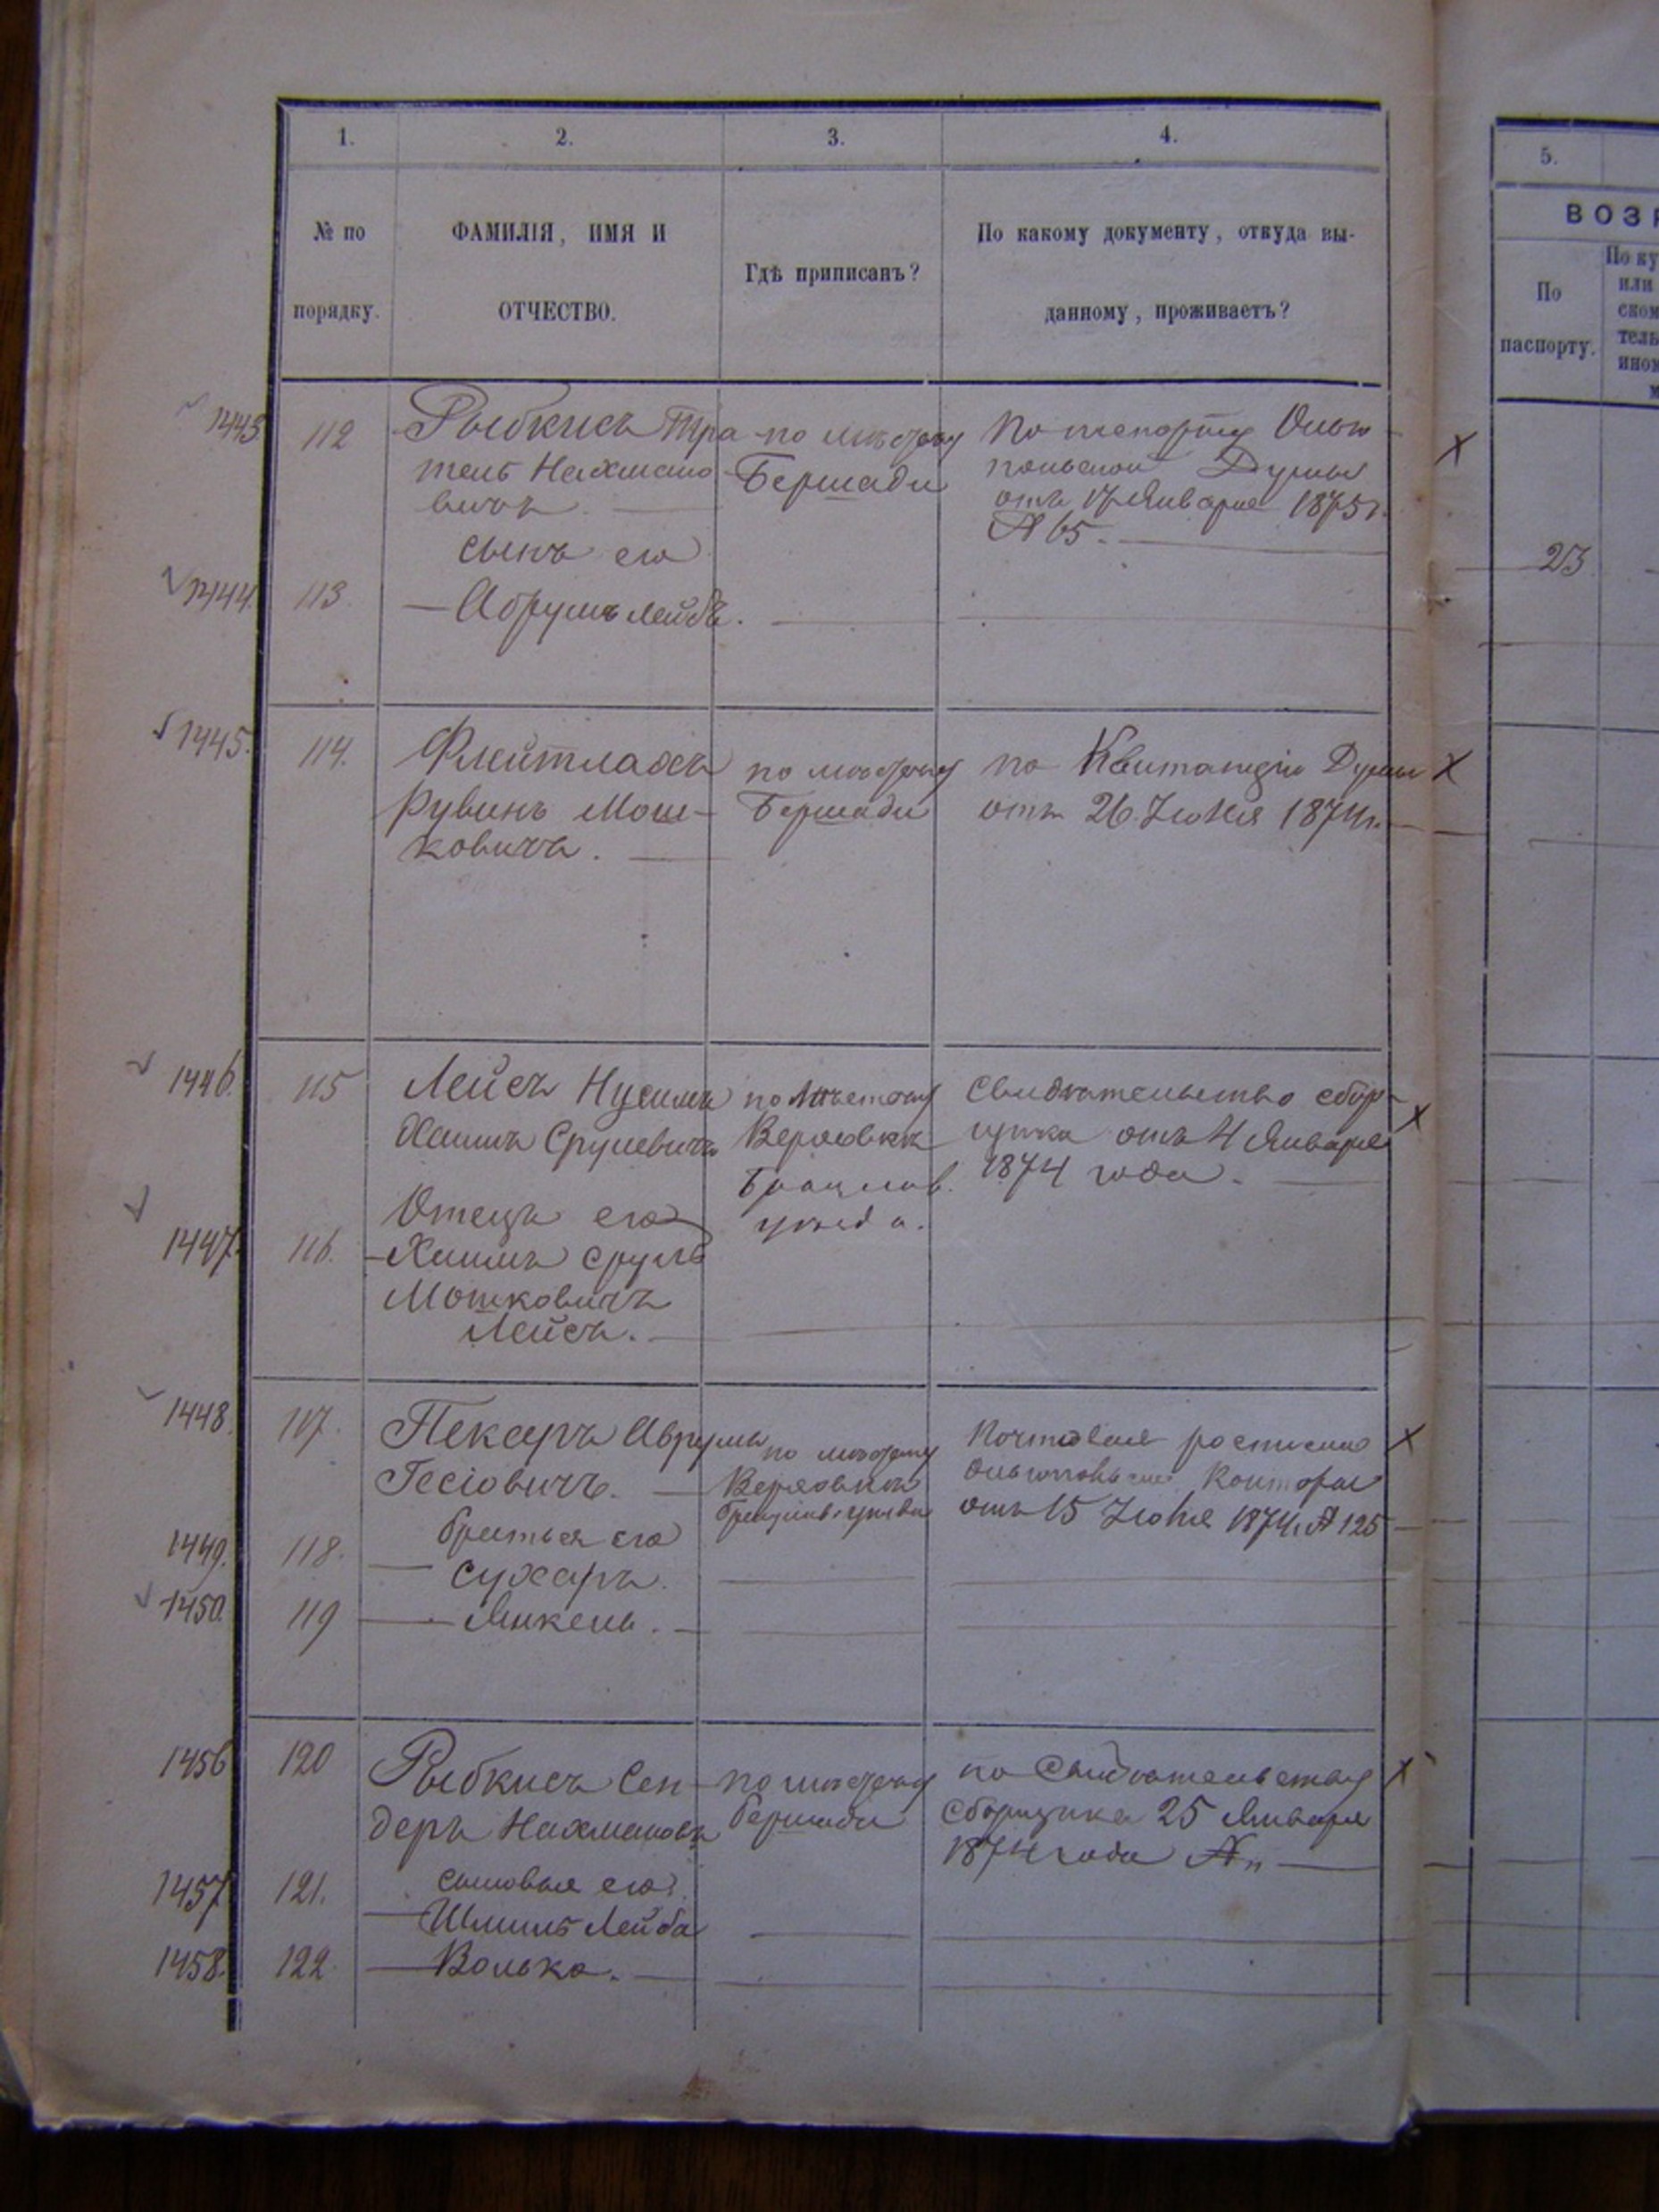 1. 2. 3. 4.
№ по порядку.
ФАМИЛІЯ, ИМЯ И
ОТЧЕСТВО.
Гдѣ приписанъ?
По какому документу, откуда вы-
данному, проживаетъ?
5.
ВОЗР
По
паспорту.
По ку
или
ском
тель
инок
1443 112 Рыбкисъ Тра
тель Нахмано
вичъ.
по мѣстечку
Бершади
По паспорту Ольго
польской Думы
отъ 17 Января 1875 г.
№ 65.
сынъ его
23
1444. 113. Абрумъ Лейбъ.
1445. 114. Флейтлахъ
Рувинъ Мош-
ковичъ.
по мѣстечку
Бершади
по Квитанціи Думы
отъ 26 Іюня 1874 г.
1446. 115 Лейсъ Нусимъ
Хаимъ Срулевичъ
по Мѣстечку
Верховкѣ
Брацлав.
уѣзда.
Свидѣтельство сбор-
щика отъ 4 Января
1874 года.
Отецъ его
1447. 116. Хаимъ Сруль
Мошковичъ
Лейсъ.
1448. 117. Пекаръ Аврумъ
Гесіовичъ.
по мѣстечку
Верховкѣ
Брацлав. уѣзда
Почтовая росписка
Ольгопольской Конторы
отъ 15 Іюня 1874 г. № 125
братья его
1449. 118. Сухаръ.
1450. 119 Янкель.
1456 120 Рыбкисъ Сен-
деръ Нахмановъ
по мѣстечку
Бершади
по Свидѣтельству
Сборщика 25 Января
1874 года № "
сыновья его:
1457 121. Шмиль Лейба
1458. 122. Волько.